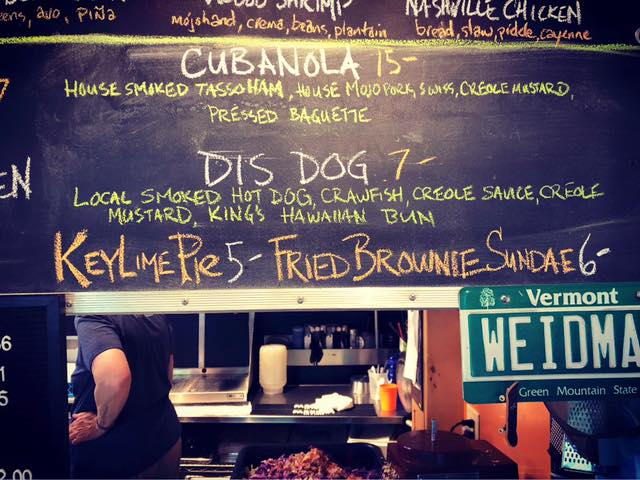 ens, avo, Piña
SHRIMP
mojo hand, crema, beans, plantain
NASHVILLE CHICKEN
bread, slaw, pickle, cayenne
CUBANOLA 15-
HOUSE SMOKED TASSO HAM, HOUSE MOJO PORK, SWISS, CREOLE MUSTARD,
PRESSED BAGUETTE
EN
DIS DOG 7-
LOCAL SMOKED HOT DOG, CRAWFISH, CREOLE SAUCE, CREOLE
MUSTARD, KING'S HAWAIIAN BUN
KEY LIME PIE 5- FRIED BROWNIE SUNDAE 6-
Vermont
WEIDMA
Green Mountain State